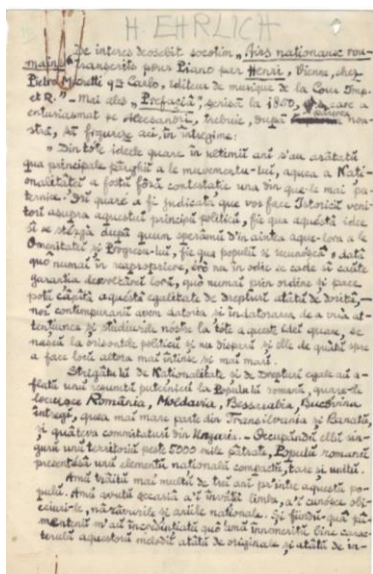 H. EHRLICH
De interes deosebit socotim „Airs nationaux rou-
mains" transcrits pour Piano par Henri, Vienne, chez
Pietro Mechetti qm Carlo, editeur de musique de la Cour Imp.
et R." - Mai ales „Prefacia", scrisă la 1850, care a
entusiasmat pe Alecsandri, trebuie, după părerea noa-
stră, să figureze aci, în întregime:
„Din tote ideele quare în ultimii ani s'au arătatŭ
qua principale pârghii a le muvementu-lui, aquea a Nati-
onalitateĭ a fostŭ fôră contestatie una din que-le mai pu-
ternice. Ori quare a fi judicata que vos face Istoricii veni-
tori asupra aquestui principŭ politicŭ, fie qua aquéstă idee
si se stingă după quum sperămŭ d'in aintea aque-lora a le
Omenitatei si Progresu-lui, fie qua populii se recunoscă, dată
quŏ numai în
garantia desvoltărei lorŭ, quŏ numai prin ordine și pace
potŭ căpăta aquestă egalitate de drepturi atâtŭ de dorită, —
noi contimpuranii avem datoria și îndatorarea de a
tențiunea și studiurile nóstre la tóte aqueste idei quare, se
nascŭ la orisontele politicŭ și nu disparŭ și elle de quâtŭ spre
a face locŭ altora mai întinse și mai mari.
Strigătu-lŭ de Nationalitate și de Drepturi egale aŭ a-
flatŭ unŭ resunetŭ puternicŭ la Populu-lŭ romanŭ, quare-le
locuesce România, Moldavia, Bessarabia, Bucovina
întregi, quea mai mare parte din Transilvania și Banatŭ,
și quâteva commitaturi din Ungaria. - Occupândŭ ellŭ sin-
gurŭ unŭ territoriŭ peste 5000 mile pătrate, Populu romanŭ
presentésă unŭ elementŭ nationalŭ compactŭ, tare și unitŭ.
Amŭ trăitŭ mai multŭ de trei ani printre aquestŭ po-
pulŭ. Amŭ avutŭ ocasia a'ĭ învăța limba, a'ĭ cunósce obi-
ceiuri-le, năravurile și artile nationale. Și fiindŭ-quă pă-
mentenii m'aŭ incredintatŭ quŏ amŭ innemeritŭ bine carac-
terulŭ aquestorŭ melodii atâtŭ de originale și atâtŭ de in-